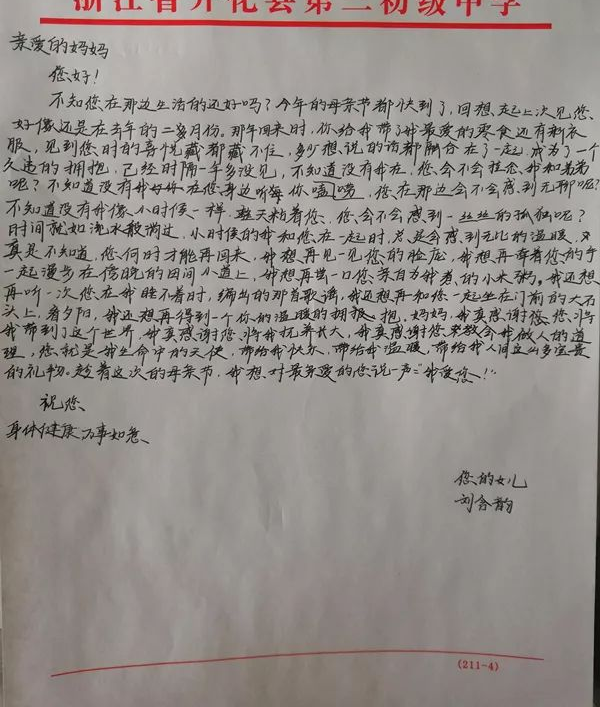 浙江省开化县第二初级中学
亲爱的妈妈
您好！
不知您在那边生活的还好吗？今年的母亲节都快到了，回想起上次见您、
好像还是在去年的二三月份。那年回来时，你给我带了我最爱的零食还有新衣
服，见到您时的喜悦藏都藏不住，多少想说的话都融合在了一起，成为了一个
久违的拥抱，已经时隔一年多没见，不知道没有我在，您会不会挂念我和弟弟
呢？不知道没有我好好在您身边听每你嗑唠，您在那边会不会感到无聊呢？
不知道没有我像小时候一样，整天粘着您，您会不会感到一丝丝的孤独呢？
时间就如流水般淌过，小时候的我和您在一起时，总是会感到无比的温暖，
真是不知道，您何时才能再回来，我想再见一见您的脸庞，我想再牵着您的手
一起漫步在傍晚的田间小道上，我想再尝一口您亲自为我煮的小米粥。我还想
再听一次您在我睡不着时，编出的那首歌谣，我还想再和您一起坐在门前的大石
头上，看夕阳，我还想再得到一个你的温暖的拥抱，妈妈，我真感谢您，您将
我带到了这个世界，我真感谢您将我抚养长大，我真感谢您教会我做人的道
理，您就是我生命中的天使，带给我快乐，带给我温暖，带给我人间这山多宝贵
的礼物。趁着这次的母亲节，我想对最亲爱的您说一声："我爱您！"
祝您、
身体健康 万事如意、
您的女儿
刘含韵
(211-4)